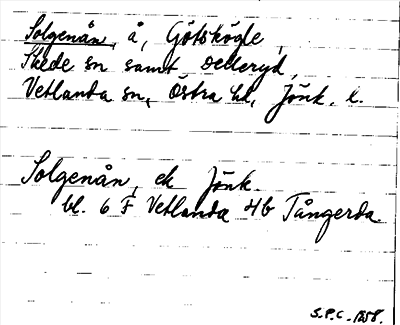 Solgenån, å, Götskögle,
Skede sn samt
Vetlanda sn, Östra hd, Jönk. l.
Solgenån, ek Jönk.
bl. 6 F Vetlanda 4b Tångerda
S.P.C. 1258.